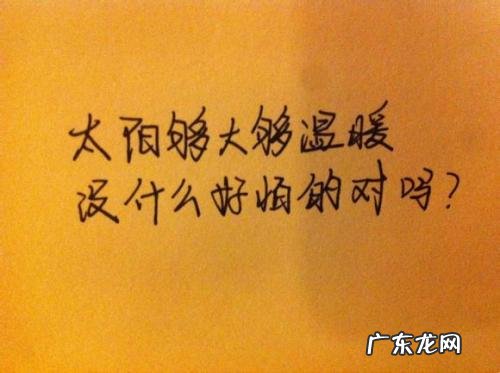 太阳够大够温暖
没什么好怕的对吗?
广东龙网